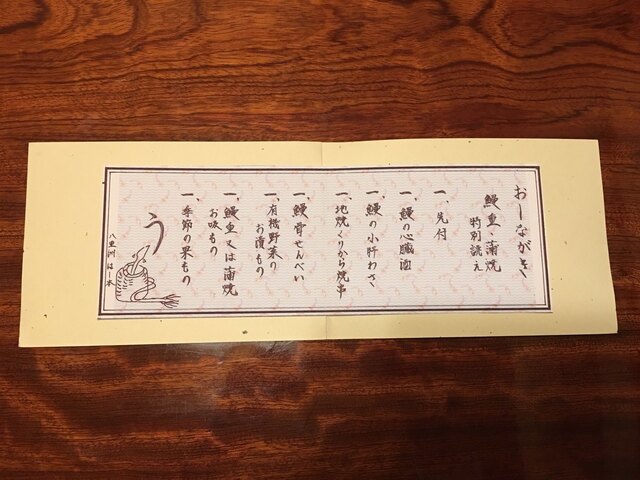 おしながき
鰻重・蒲焼
特別誂え
一、先付
一、鰻の心臓酒
一、鰻の小肝わさ
一、地焼くりから焼串
一、鰻骨せんべい
一、有機野菜の
お漬もの
一、鰻重又は蒲焼
お吸もの
一、季節の果もの
う
八重洲 はし本